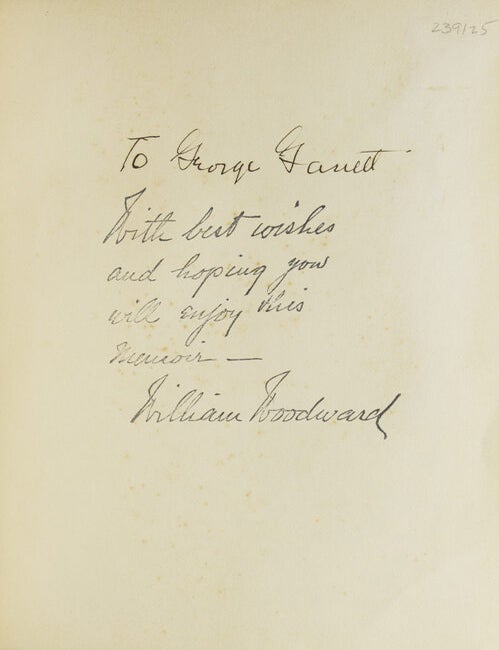 239125
To George Garrett
With best wishes
and hoping you
will enjoy this
Memoir —
William Woodward